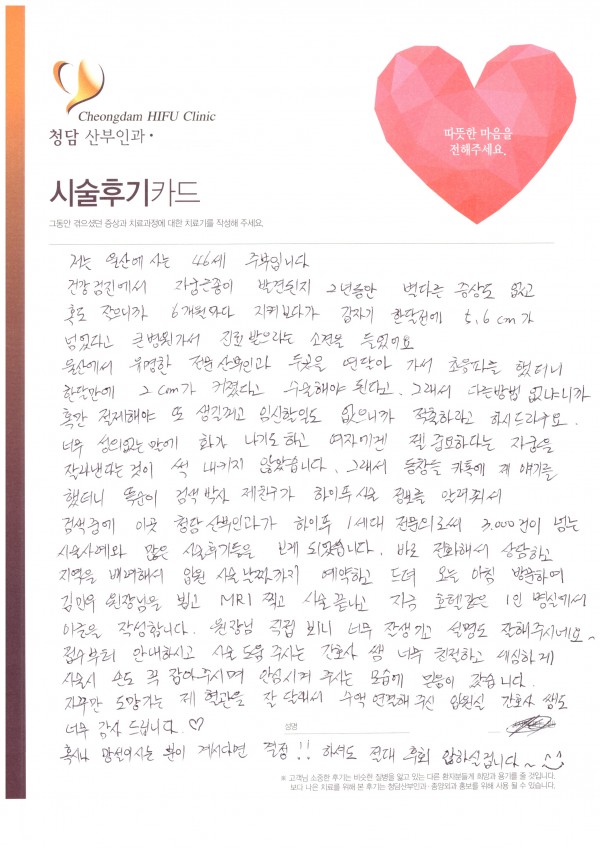 Cheongdam HIFU Clinic
청담 산부인과
따뜻한 마음을
전해주세요.
시술후기카드
그동안 겪으셨던 증상과 치료과정에 대한 치료기를 작성해 주세요.
저는 울산에 사는 46세 주부입니다
건강검진에서 자궁근종이 발견된지 2년동안 별다른 증상도 없고
혹도 작으니까 6개월마다 지켜보다가 갑자기 한달전에 5,6cm가
넘었다고 큰병원가서 진료받으라는 소견을 들었어요
울산에서 유명한 전문산부인과 두곳을 연달아 가서 초음파를 했더니
한달만에 2cm가 커졌다고 수술해야 된다고. 그래서 다른방법 없냐니까
혹만 절제해야 또 생길꺼고 임신할일도 없으니까 적출하라고 하시드라구요.
너무 성의없는 말에 화가 나기도하고 여자에겐 젤 중요하다는 자궁을
잘라낸다는것이 썩 내키지 않았습니다. 그래서 동창들 카톡에 제 얘기를
했더니 똑순이 검색박사 제친구가 하이푸시술 정보를 알려줘서
검색중에 이곳 청담산부인과가 하이푸 1세대 전문의로써 3,000건이 넘는
시술사례와 많은 시술후기들을 보게 되었습니다. 바로 전화해서 상담하고
지역을 배려해서 입원 시술날짜까지 예약하고 드뎌 오늘 아침 방문하여
김민우 원장님을 뵙고 MRI 찍고 시술끝나고 지금 호텔같은 1인 병실에서
이글을 작성합니다. 원장님 직접 뵈니 너무 잘생기고 설명도 잘해주시네요~
접수부터 안내하시고 시술 도움 주시는 간호사 쌤 너무 친절하고 세심하게
시술시 손도 꼭 잡아주시며 안심시켜 주시는 모습에 믿음이 갔습니다.
자꾸만 도망가는 제 혈관을 잘 달래서 수액 연결해 주신 입원실 간호사 쌤도
너무 감사 드립니다.♡
성명
혹시나 망설이시는 분이 계시다면 결정!! 하셔도 절대 후회 안하실겁니다~
※ 고객님 소중한 후기는 비슷한 질병을 앓고 있는 다른 환자분들께 희망과 용기를 줄 것입니다.
보다 나은 치료를 위해 본 후기는 청담산부인과·종양외과 홍보를 위해 사용 될 수 있습니다.